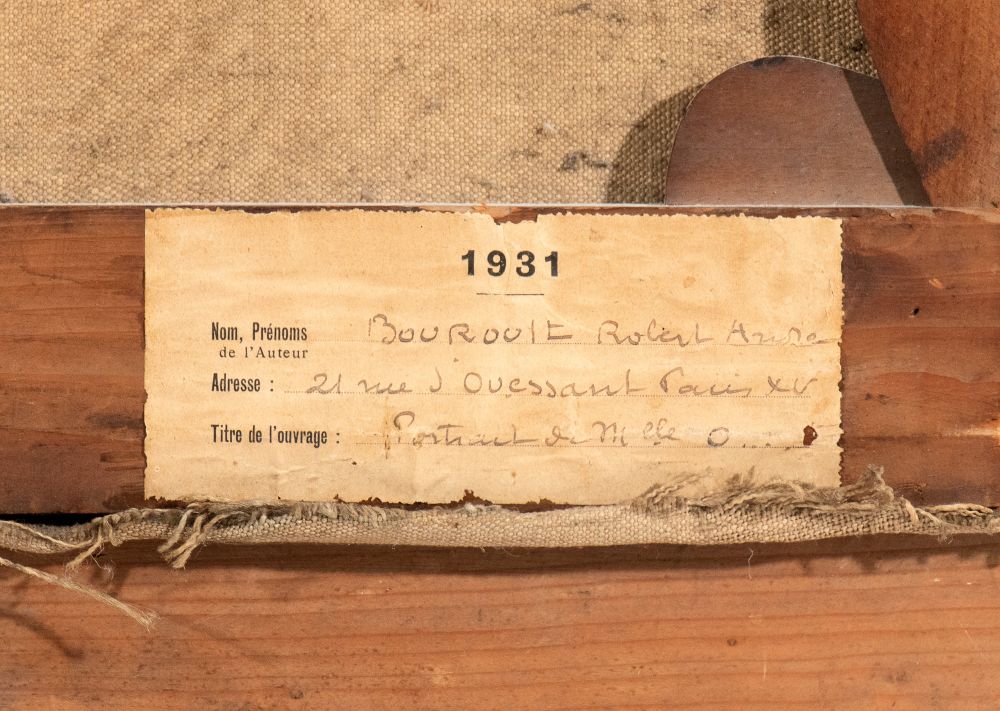 1931
Nom, Prénoms BOUROULT Robert André
de l'Auteur
Adresse : 21 rue d'Ouessant Paris XV
Titre de l'ouvrage : Portrait de Mlle O...